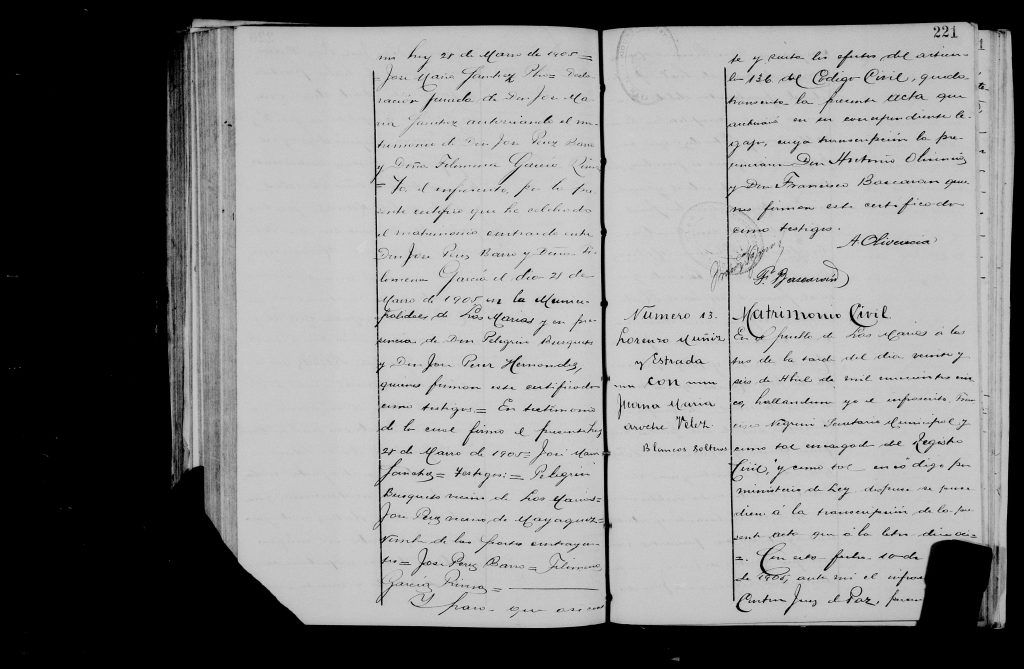 mi hoy 28 de Marzo de 1905 =
José Maria Sanchez Pbro = Decla-
ración jurada de Don José Ma-
ria Sanchez autorizando el ma-
trimonio de Don José Perez Barro
y Doña Filomena Garcia
= Yo el infrascrito, por la pre-
sente certifico que he celebrado
el matrimonio contraido entre
Don José Perez Barro y Doña Fi-
lomena Garcia el dia 21 de
Marzo de 1905 en la Munici-
palidad de Las Marias y en pre-
sencia de Don Pelegrin Busquets
y Don José Perez Hernandez,
quienes firman este certificado
como testigos. = En testimonio
de lo cual firmo el presente hoy
28 de Marzo de 1905 = José Maria
Sanchez = Testigos: = Pelegrin
Busquets vecino de Las Marias =
José Perez vecino de Mayaguez =
Nombre de las partes contrayen-
tes = José Perez Barro = Filomena
Garcia
Y para que asi cons
221
te y surta los efectos del articu-
lo 136 del Código Civil, queda
transcrita la presente acta que
archivaré en su correspondiente le-
gajo, cuya transcripción la pre-
senciaron Don Antonio Olivencia
y Don Francisco Bascaran que
nos firman este certificado
como testigos.
A Olivencia
F. Bascaran
Número 13.
Lorenzo Muñiz
y Estrada
con
Juana Maria
Arroche Velez.
Blancos Solteros
Matrimonio Civil
En el pueblo de Las Marias á las
tres de la tarde del dia veinte y
seis de Abril de mil novecientos cin-
co, hallandose yo el infrascrito, Fran-
cisco Negroni Secretario Municipal y
como tal encargado del Registro
Civil, y como tal en código por
ministerio de Ley, dispuse se proce-
diera á la transcripción de la pre-
sente acta que á la letra dice asi=
=. Con esta fecha 10 de
de 1905, ante mi el infras
Juez de Paz,